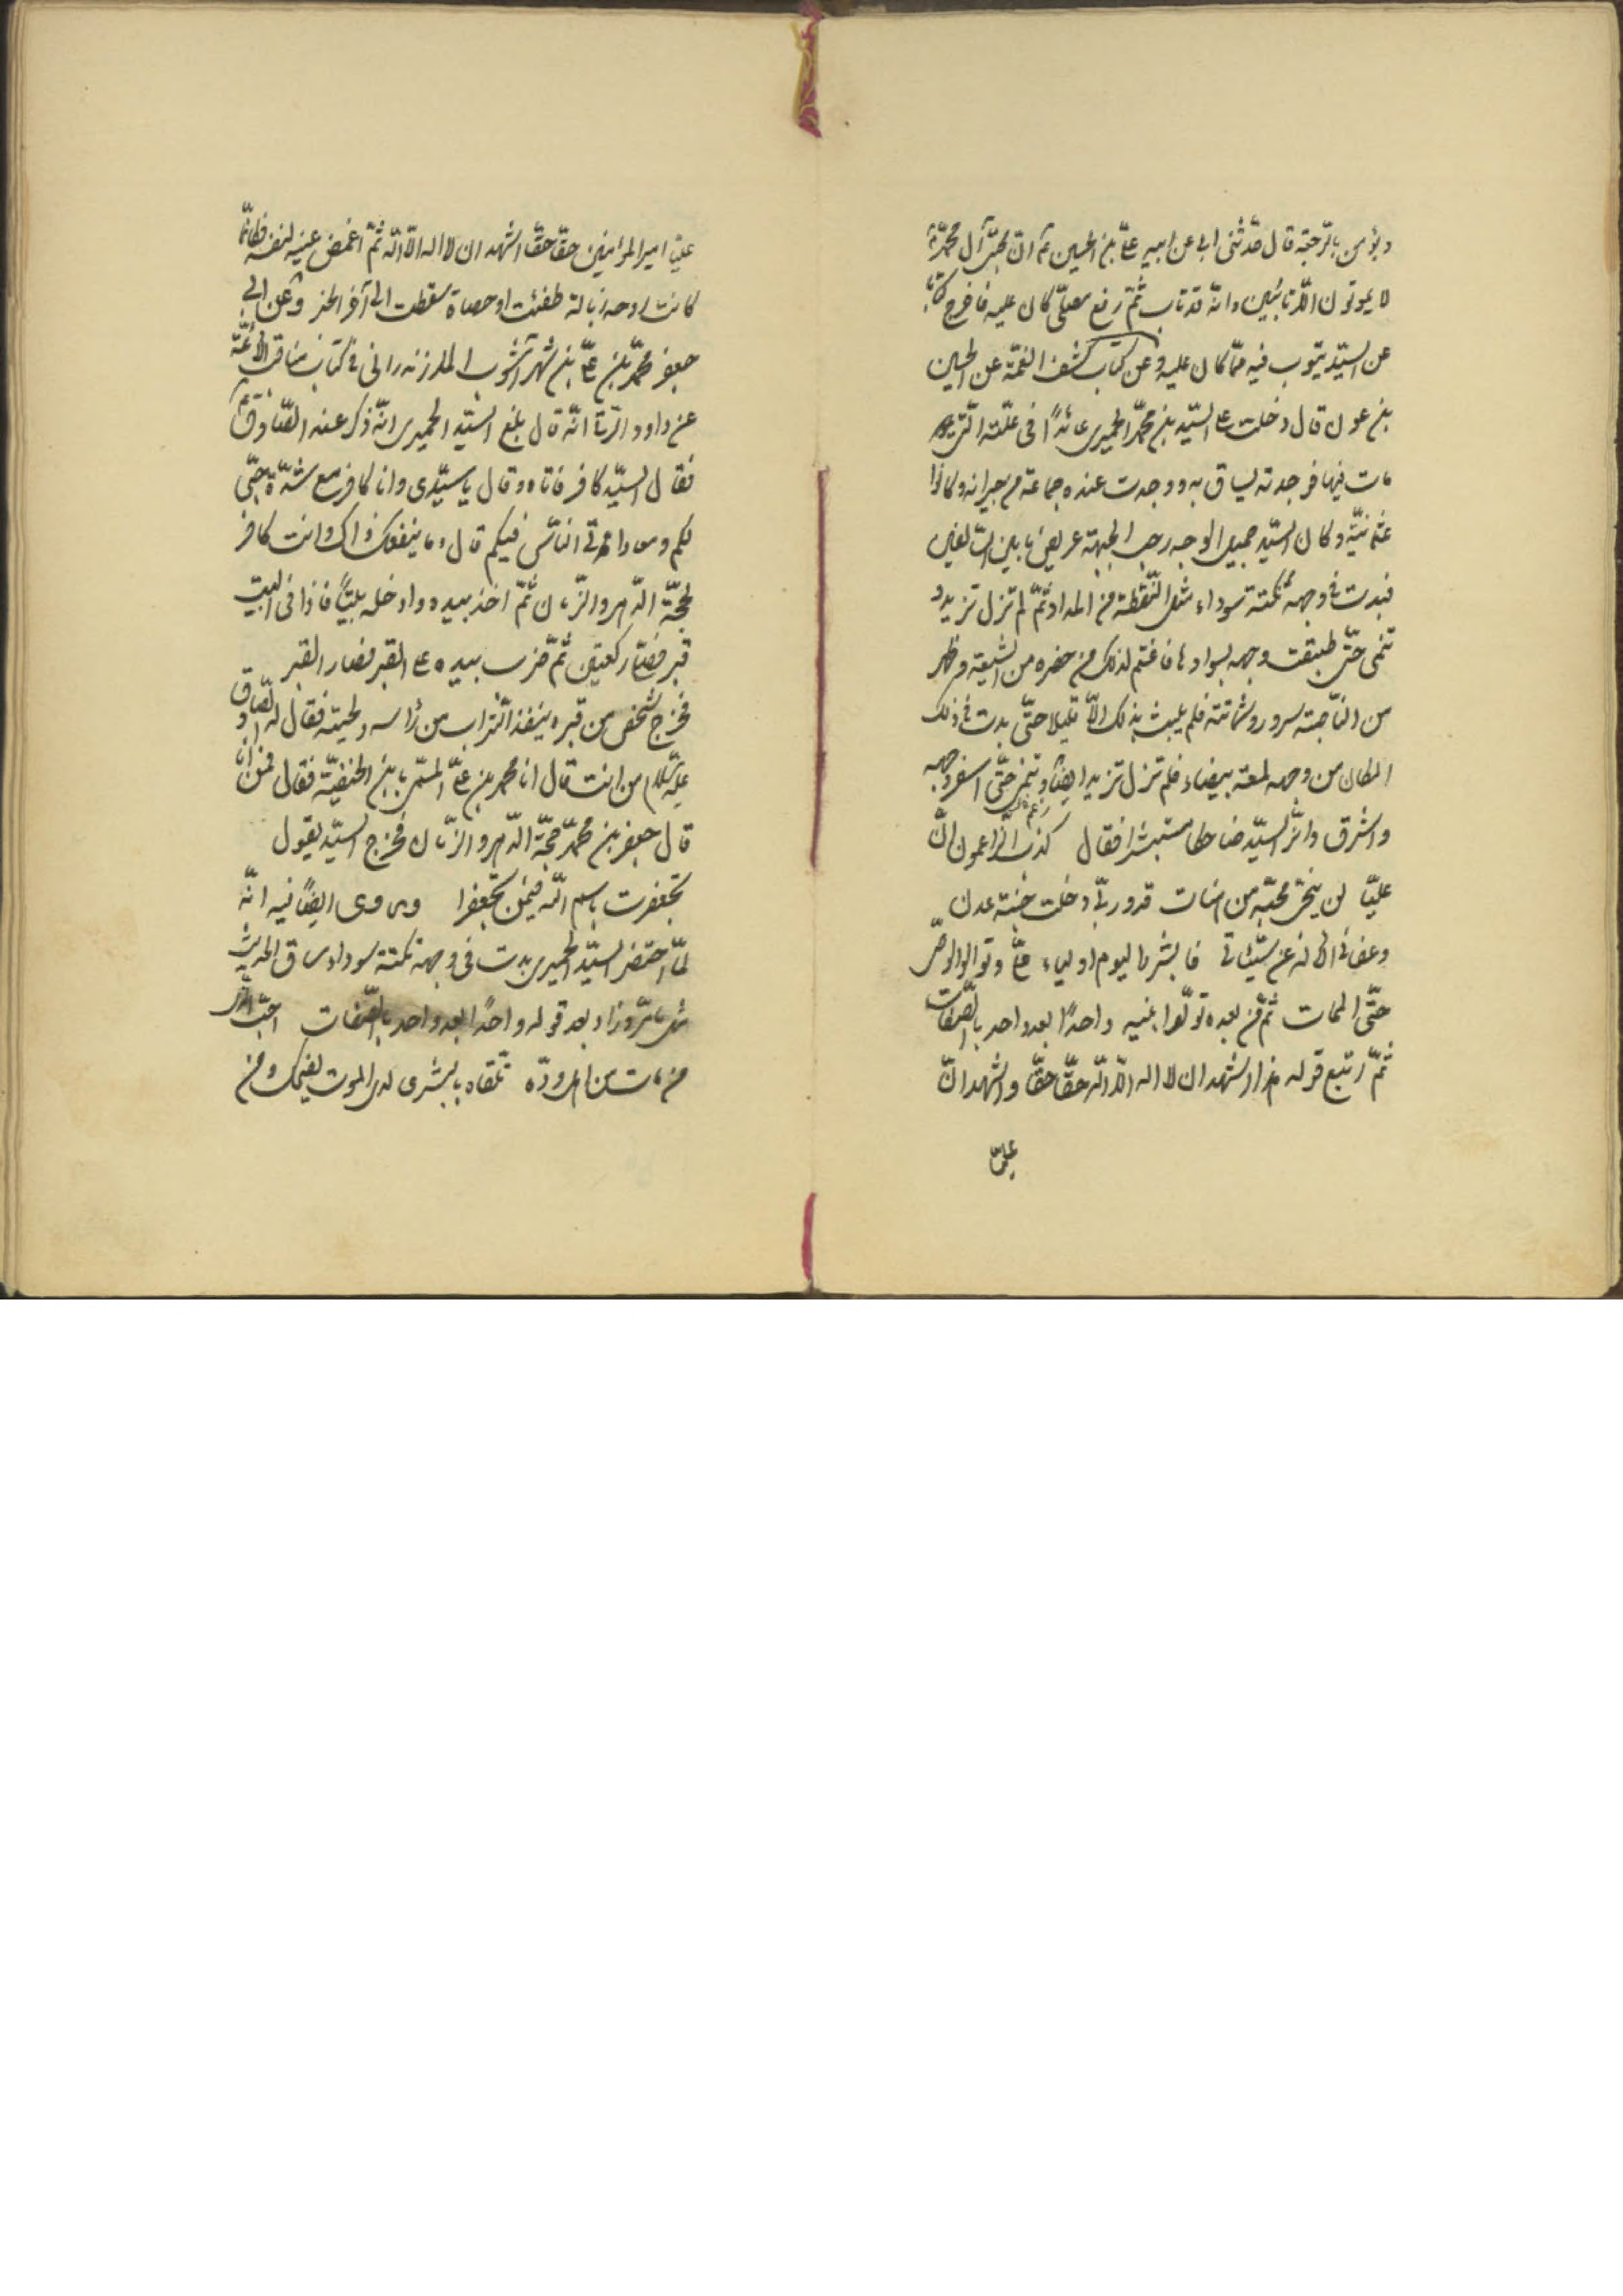 ويؤمن بالرّجعة قال حدّثنى ابى عن ابيه علىّ بن الحسين ع انّ محبّى آل محمّد ع
لا يموتون الّا تائبين وانّه قد تاب ثمّ رفع مصلّى كان عليه فاخرج كتابا
عن السيّد يتوب فيه ممّا كان عليه وعن كتاب كشف الغمّة عن الحسين
بن عون قال دخلت على السيّد بن محمّد الحميرى عائدًا فى علّته الّتى
مات فيها فوجدته يساق به ووجدت عنده جماعة من جيرانه وكانوا
عثمانيّة وكان السيّد جميل الوجه رحب الجبهة عريض ما بين السالفين
فبدت فى وجهه نكتة سوداء مثل النّقطة من المداد ثمّ لم تزل تزيد و
تنمى حتّى طبقت وجهه بسوادها فاغتم لذلك من حضره من الشيعة وظهر
من النّاصبة سرور وشماتة فلم يلبث بذلك الّا قليلا حتّى بدت فى ذلك
المكان من وجهه لمعة بيضاء فلم تزل تزيد ايضًا وتنمى حتّى اسفر وجهه
واشرق وافترّ السيّد ضاحكا مستبشرا فقال كذب الزّاعمون انّ
عليّا لن ينجى محبّه من هنات قد وربّى دخلت جنّة عدن
وعفا لى الاله عن سيّئاتى فابشروا اليوم اولياء علىّ وتوالوا الوصىّ
حتّى الممات ثمّ من بعده تولّوا بنيه واحدًا بعد واحد بالصّفات
ثمّ اتبع قوله هذا اشهد ان لا اله الّا اللّه حقّا حقّا واشهد انّ
عليّا
عليّا امير المؤمنين حقّا حقّا اشهد ان لا اله الّا اللّه ثمّ اغمض عينيه لنفسه فكانّما
كانت روحه ذبالة طفئت او حصاة سقطت الى آخر الخبر وعن ابى
جعفر محمّد بن علىّ بن شهرآشوب المازندرانى فى كتاب مناقب الائمّة
عن داود الرّقّى انّه قال بلغ السيّد الحميرى انّه ذكر عند الصّادق ع
فقال السيّد كافر فاتاه وقال يا سيّدى وانا كافر مع شدّة حبّى
لكم ومعاداتى النّاس فيكم قال وما ينفعك ذاك وانت كافر
بحجّة الدّهر والزّمان ثمّ اخذ بيده وادخله بيتًا فاذا فى البيت
قبر فصلّى ركعتين ثمّ ضرب بيده على القبر فصار القبر
فخرج شخص من قبره ينفض التّراب من راسه ولحيته فقال له الصّادق
عليه السّلام من انت قال انا محمّد بن علىّ المسمّى بابن الحنفيّة فقال فمن انا
قال جعفر بن محمّد حجّة الدّهر والزّمان فخرج السيّد يقول
تجعفرت باسم اللّه فيمن تجعفرا وروى ايضًا فيه انّه
لمّا احتضر السيّد الحميرى بدت فى وجهه نكتة سوداء وساق الحديث
مثل ما مرّ وزاد بعد قوله واحدًا بعد واحد بالصّفات احبّ الّذى
من مات من اهل ودّه تلقّاه بالبشرى لدى الموت يضحك ومن